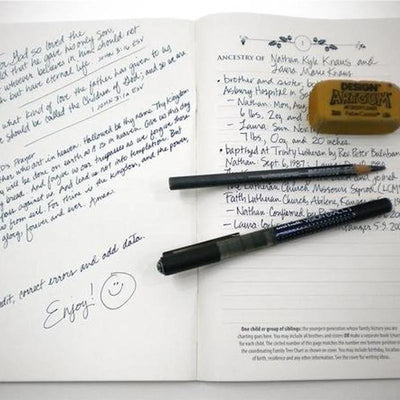 For God so loved the
world that he gave his only Son,
whoever believes in him should not
perish but have eternal life.
JOHN 3:16 ESV
what kind of love the father has given to us
should be called the children of God; and so we are.
1 JOHN 3:1a ESV
Prayer
Father who art in heaven. Hallowed be thy name. Thy Kingdom
will be done on earth as it is in heaven. Give us this day
bread. And forgive us our trespasses as we forgive those
trespass against us. And lead us not into temptation. But
from evil. For thine is the kingdom, and the power,
glory forever and ever. Amen.
edit, correct errors and add data.
Enjoy!
1
ANCESTRY OF Nathan Kyle Kraus and
Laura Marie Kraus
• brother and sister
Asbury Hospital in
– Nathan: Mon, Aug
6 lbs, 2
– Laura: Sun, Nov
7 lbs, 0 oz and 20 inches.
• baptized at Trinity Lutheran by Rev. Peter
Nathan: Sept. 6, 1987
Lutheran Church Missouri Synod (LCMS)
Faith Lutheran Church, Abilene, Kansas
– Nathan Confirmed by
– Laura 5-5-200
DESIGN
ARTGUM
Faber-Castell
One child or group of siblings: the youngest generation whose family history you are
charting goes here. You may include all brothers and sisters OR make a separate book (chart)
for each child. The circled number of this page matches the number one bottom position on
the coordinating Family Tree Chart as shown on cover. You may include birthday, location
of birth, residence and any other information. See the cover for writing ideas.